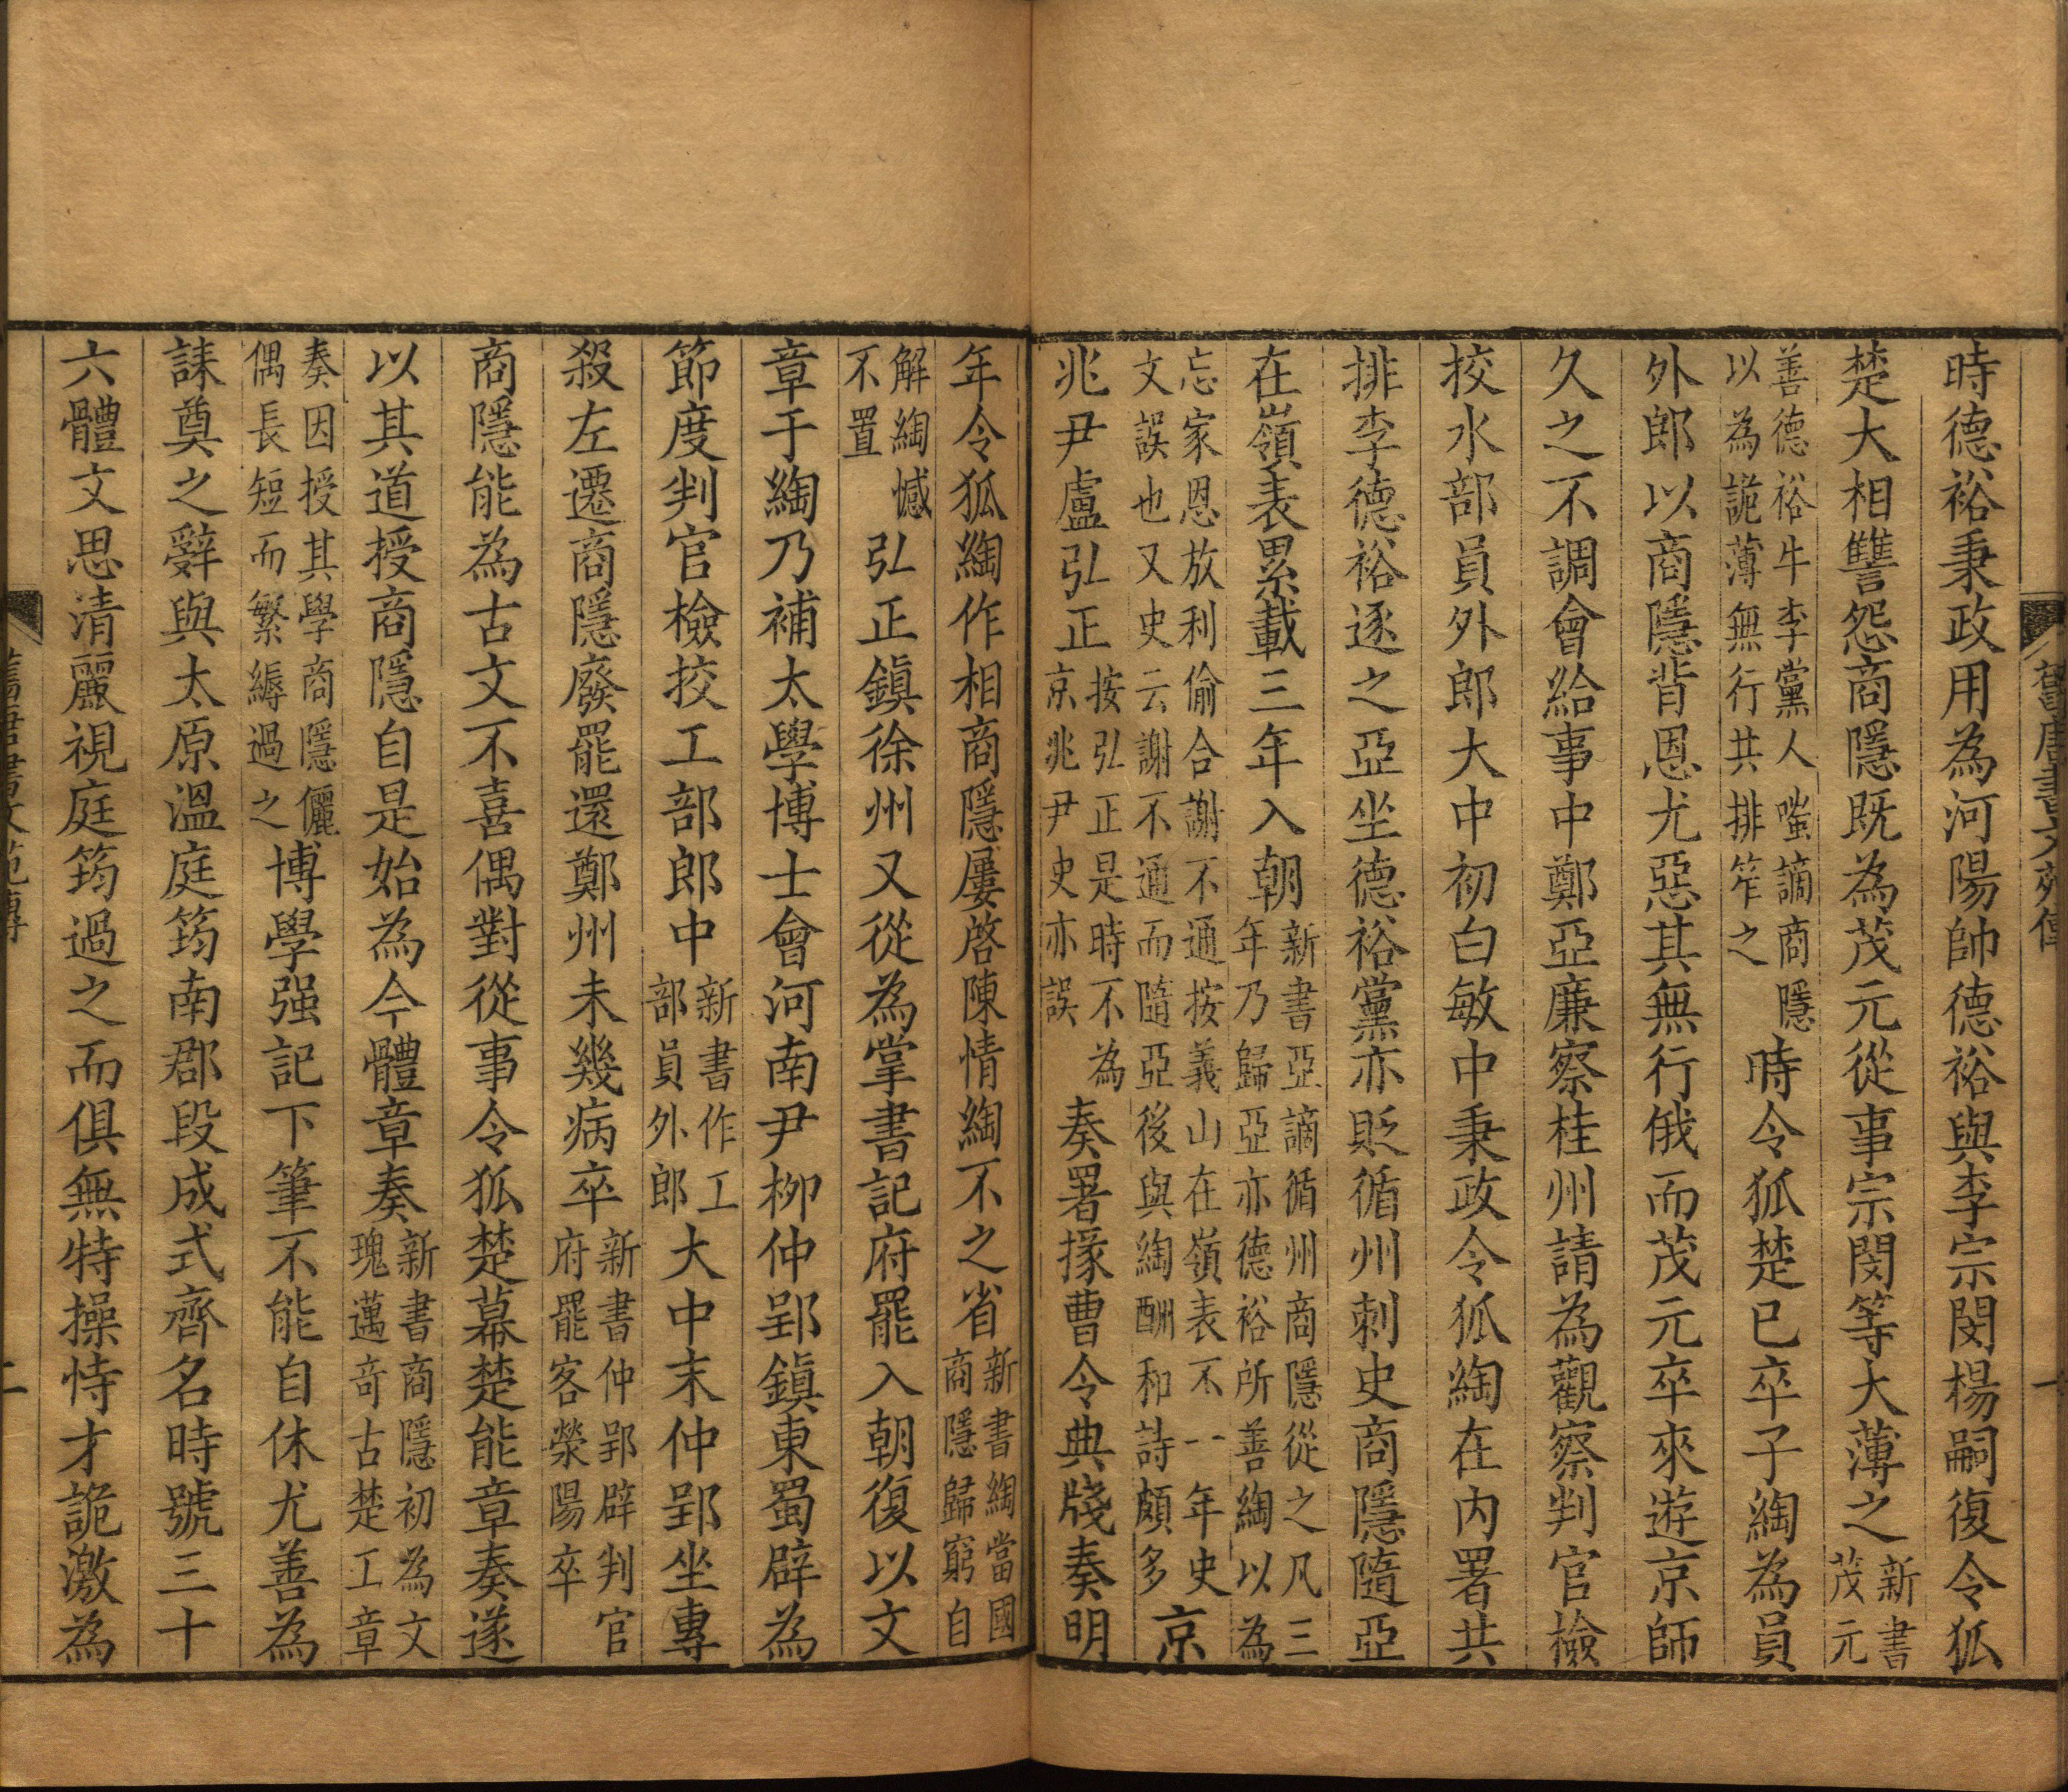 舊唐書文苑傳
一
時德裕秉政用為河陽帥德裕與李宗閔楊嗣復令狐
楚大相讐怨商隱既為茂元從事宗閔等大薄之新書茂元
善德裕牛李黨人嗤謫商隱以為詭薄無行共排笮之時令狐楚已卒子綯為員
外郎以商隱背恩尤惡其無行俄而茂元卒來遊京師
久之不調會給事中鄭亞廉察桂州請為觀察判官檢
挍水部員外郎大中初白敏中秉政令狐綯在內署共
排李德裕逐之亞坐德裕黨亦貶循州刺史商隱隨亞
在嶺表累載三年入朝新書亞謫循州商隱從之凡三年乃歸亞亦德裕所善綯以為
忘家恩放利偷合謝不通按義山在嶺表不一年史文誤也又史云謝不通而隨亞後與綯酬和詩頗多京
兆尹盧弘正按弘正是時不為京兆尹史亦誤奏署掾曹令典牋奏明
年令狐綯作相商隱屢啓陳情綯不之省新書綯當國商隱歸窮自
解綯憾不置弘正鎮徐州又從為掌書記府罷入朝復以文
章于綯乃補太學博士會河南尹柳仲郢鎮東蜀辟為
節度判官檢挍工部郎中新書作工部員外郎大中末仲郢坐專
殺左遷商隱廢罷還鄭州未幾病卒新書仲郢辟判官府罷客滎陽卒
商隱能為古文不喜偶對從事令狐楚幕楚能章奏遂
以其道授商隱自是始為今體章奏新書商隱初為文瑰邁奇古楚工章
奏因授其學商隱儷偶長短而繁縟過之博學强記下筆不能自休尤善為
誄奠之辭與太原溫庭筠南郡段成式齊名時號三十
六體文思清麗視庭筠過之而俱無特操恃才詭激為
舊唐書文苑傳
二